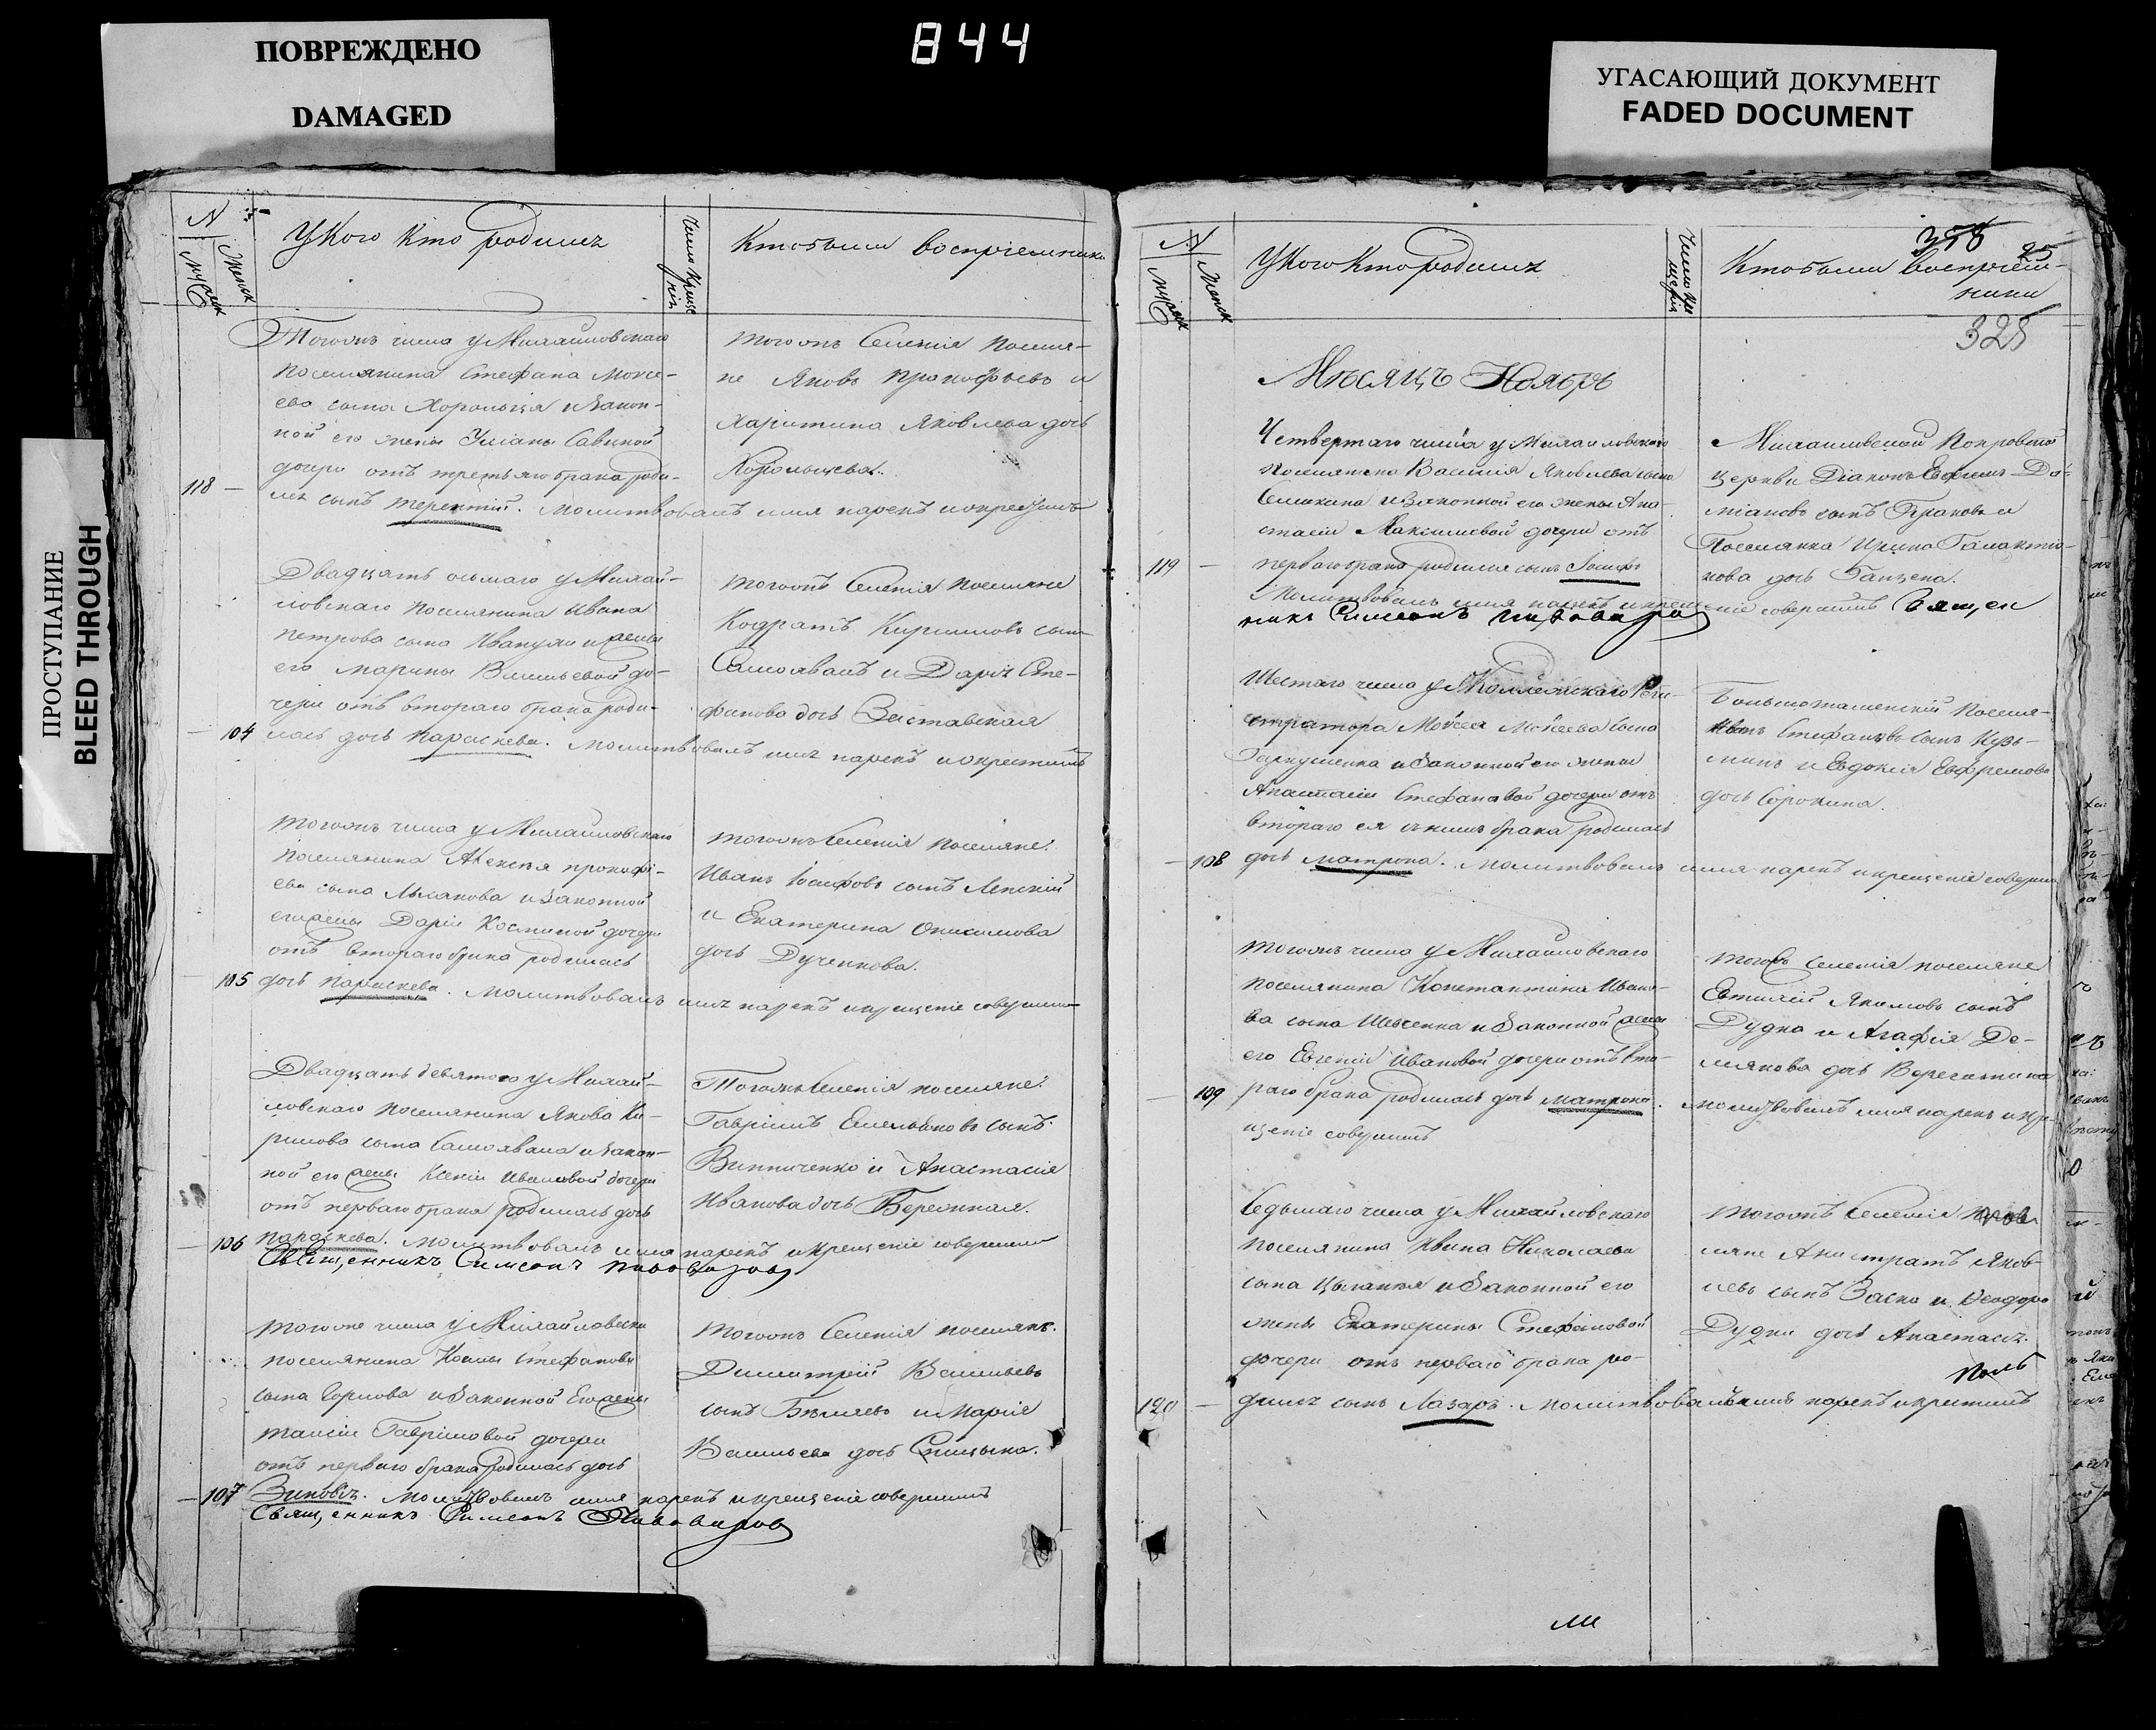 844
ПОВРЕЖДЕНО
DAMAGED
УГАСАЮЩИЙ ДОКУМЕНТ
FADED DOCUMENT
ПРОСТУПАНИЕ
BLEED THROUGH
N
Мужск
Женск
У Кого Кто родился
Число Крище
нія
Кто были воспріемники
Тогожъ числа у Михайловскаго
поселянина Стефана Моисе-
ева сына Хорольца и закон-
ной его жены Уліаны Савиной
дочери отъ третьяго брака роди-
118 — лся сынъ Терентій. Молитвовалъ имя нарекъ и окрестилъ
тогожъ Селенія поселя-
не Яковъ Прокофьевъ и
Харитина Яковлева дочь
Хорольцева.
Двадцать осьмаго у Михай-
ловскаго поселянина Ивана
Петрова сына и жены
его Марины Васильевой до-
чери отъ втораго брака роди-
104 лась дочь Параскева. Молитвовалъ имя нарекъ и окрестилъ
тогожъ Селенія поселяне
Кодратъ Кириловъ сынъ
Самоявалъ и Дарія Сте-
фанова дочь Заставская
тогожъ числа у Михайловскаго
поселянина Алексея Прокофі-
ева сына и законной
его жены Даріи Косминой дочери
отъ втораго брака родилась
105 дочь Параскева. Молитвовалъ имя нарекъ и крещеніе совершилъ
тогожъ Селенія поселяне:
Иванъ Іосифовъ сынъ Лепскій
и Екатерина Онисимова
дочь Дученкова.
Двадцать девятого у Михай-
ловскаго поселянина Якова Ки-
рилова сына Самоявала и закон-
ной его жены Ксеніи Ивановой дочери
отъ перваго брака родилась дочь
106 Параскева. Молитвовалъ имя нарекъ и крещеніе совершилъ
Священникъ Симеонъ Пивоваровъ
Тогожъ Селенія поселяне:
Гавріилъ Емельяновъ сынъ
Винниченко и Анастасія
Иванова дочь Бережная.
тогоже числа у Михайловска
поселянина Космы Стефанова
сына Горлова и законной Его жены
Гавріиловой дочери
отъ перваго брака родилась дочь
107 Зиновія. Молитвовалъ имя нарекъ и крещеніе совершилъ
Священникъ Симеонъ Пивоваровъ
тогожъ Селенія поселяне.
Димитрій Васильевъ
сынъ Бѣляевъ и Марія
Васильева дочь Спицына.
N
Мужск
Женск
У Кого Кто родился
Число Кре
щенія
Кто были воспріем-
ники
358
25
328
Мѣсяцъ Ноябрь
Четвертаго числа у Михайловскаго
поселянина Василія Яковлева сына
Семикина и законной его жены Ана-
стасіи Максимовой дочери отъ
119 — перваго брака родился сынъ Іосифъ
Молитвовалъ имя нарекъ и крещеніе совершилъ Священ
никъ Симеонъ Пивоваровъ
Михайловской Покровской
церкви Діаконъ Ефимъ
сынъ и
Поселянка Ирина Галактіо-
нова дочь Ганзена.
Шестаго числа у Коллежскаго Реги-
стратора Моѵсея Моѵсеева сына
Гаркушенка и законной его жены
Анастасіи Стефановой дочери отъ
втораго ея съ нимъ брака родилась
108 дочь Матрона. Молитвовалъ имя нарекъ и крещеніе совершил
Большетокмакскій поселя-
нинъ Стефановъ сынъ Кузь-
минъ и Евдокія Евфремова
дочь Сорокина.
тогожъ числа у Михайловскаго
поселянина Константина Ивано-
ва сына Шевченка и законной жены
его Евгеніи Ивановой дочери отъ вто-
109 раго брака родилась дочь Матрона. Молитвовалъ имя нарекъ и кре-
щеніе совершилъ
тогожъ селенія поселяне
Евтихій Якимовъ сынъ
Дудка и Агафія Де-
міянова дочь
Седьмаго числа у Михайловскаго
поселянина Ивана Николаева
сына и законной его
жены Екатерины Стефановой
дочери отъ перваго брака ро-
120 — дился сынъ Лазарь. Молитвовалъ имя нарекъ и крестилъ
тогожъ Селенія посе-
ляне Анистратъ Яков-
левъ сынъ Заска и Ѳеодора
Дудки дочь Анастасія.